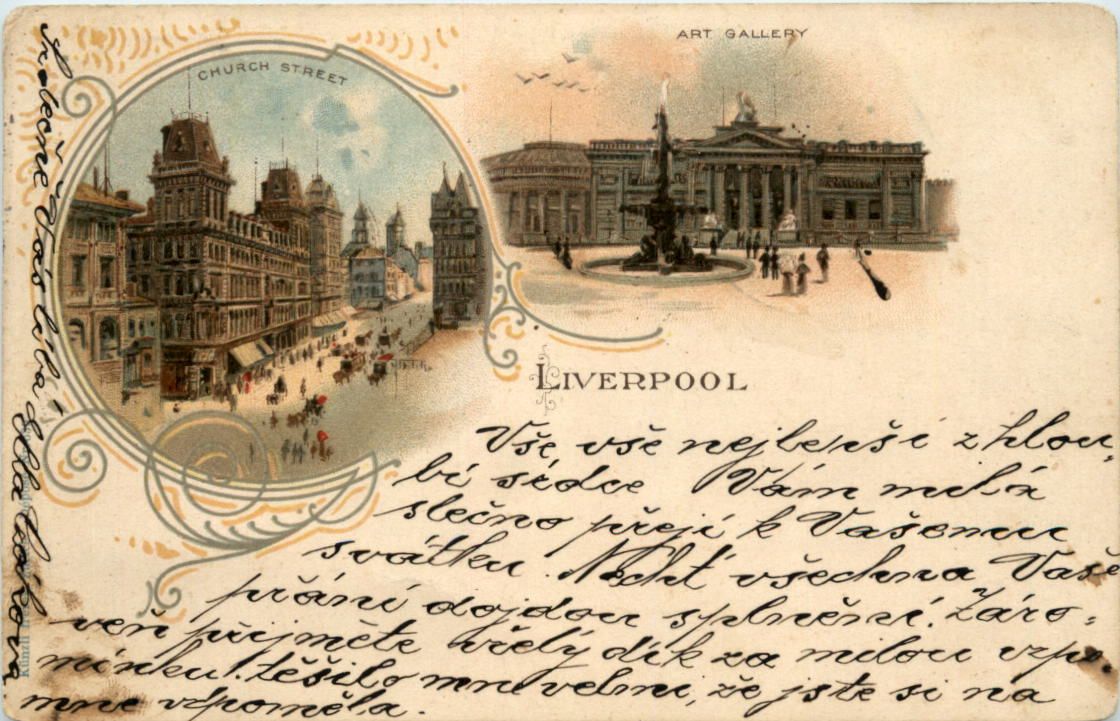 CHURCH STREET
ART GALLERY
LIVERPOOL
Vše vše nejlepší z hlou-
bi srdce Vám milá
slečno přeji k Vašemu
svátku. Nechť všechna Vaše
přání dojdou splnění. Záro-
veň přijměte vřelý dík za milou vzpo-
mínku! těšilo mne velmi, že jste si na
mne vzpoměla.
Srdečně Vás líbá